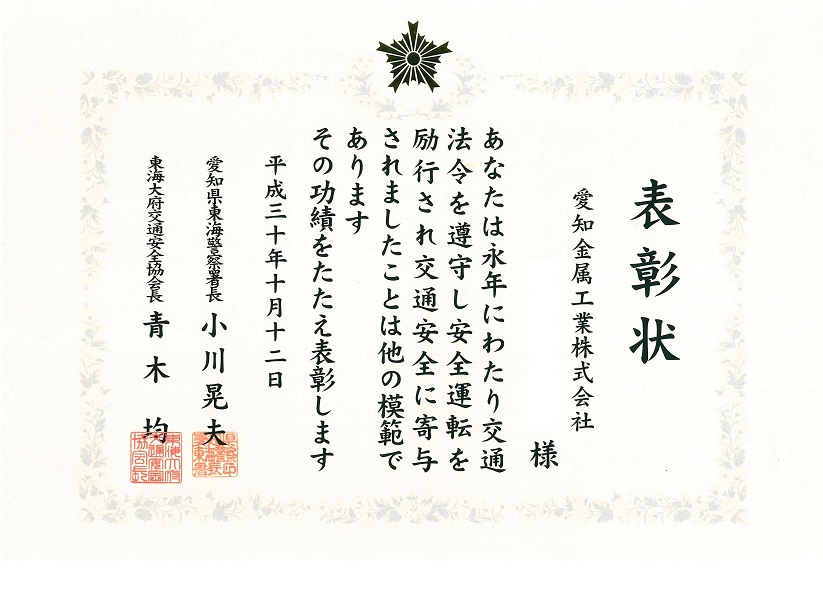 表彰状
愛知金属工業株式会社
様
あなたは永年にわたり交通
法令を遵守し安全運転を
励行され交通安全に寄与
されましたことは他の模範で
あります
その功績をたたえ表彰します
平成三十年十月十二日
愛知県東海警察署長 小川晃夫
東海大府交通安全協会長 青木均